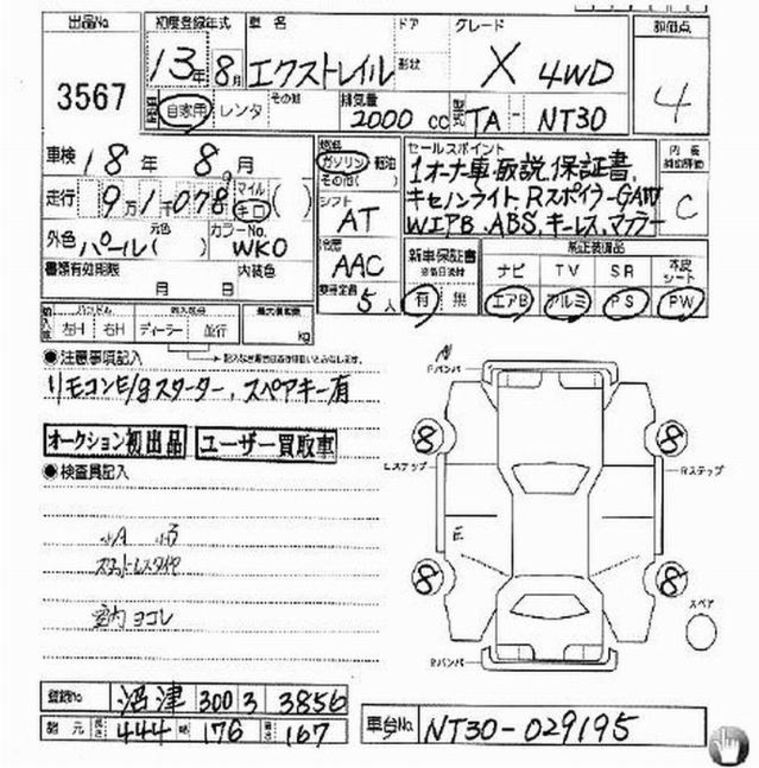 出品No 初度登録年式 車名 ドア グレード 評価点
3567 13年 8月 エクストレイル 形状 X 4WD 4
自家用 レンタ その他 排気量 2000 cc 型式 TA - NT30
車検 18年 8月 燃料 ガソリン 軽油 その他( ) セールスポイント 内装 補助評価
走行 9万1千078 マイル キロ ( ) 1オーナー車.取説.保証書. C
シフト AT キセノンライト.Rスポイラー
外色 パール 元色 ( ) カラーNo. WK0 WエアB.ABS.キーレス.マフラー
冷房 AAC 新車保証書 純正装備品
書類有効期限 月 日 内装色 ナビ TV SR 本皮シート
乗車定員 5人 有 無 エアB アルミ PS PW
ハンドル 左H 右H ディーラー 並行 最大積載量 kg
●注意事項記入
リモコンE/gスターター.スペアキー有
オークション初出品 ユーザー買取車
●検査員記入
小A 小B
スタッドレスタイヤ
室内ヨゴレ
Fバンパ
8 8
Lステップ Rステップ
E
8 8
スペア
Rバンパ
登録No 沼津 300 3 3856
諸元 長さ 444 幅 176 高さ 167
車台No NT30-029195